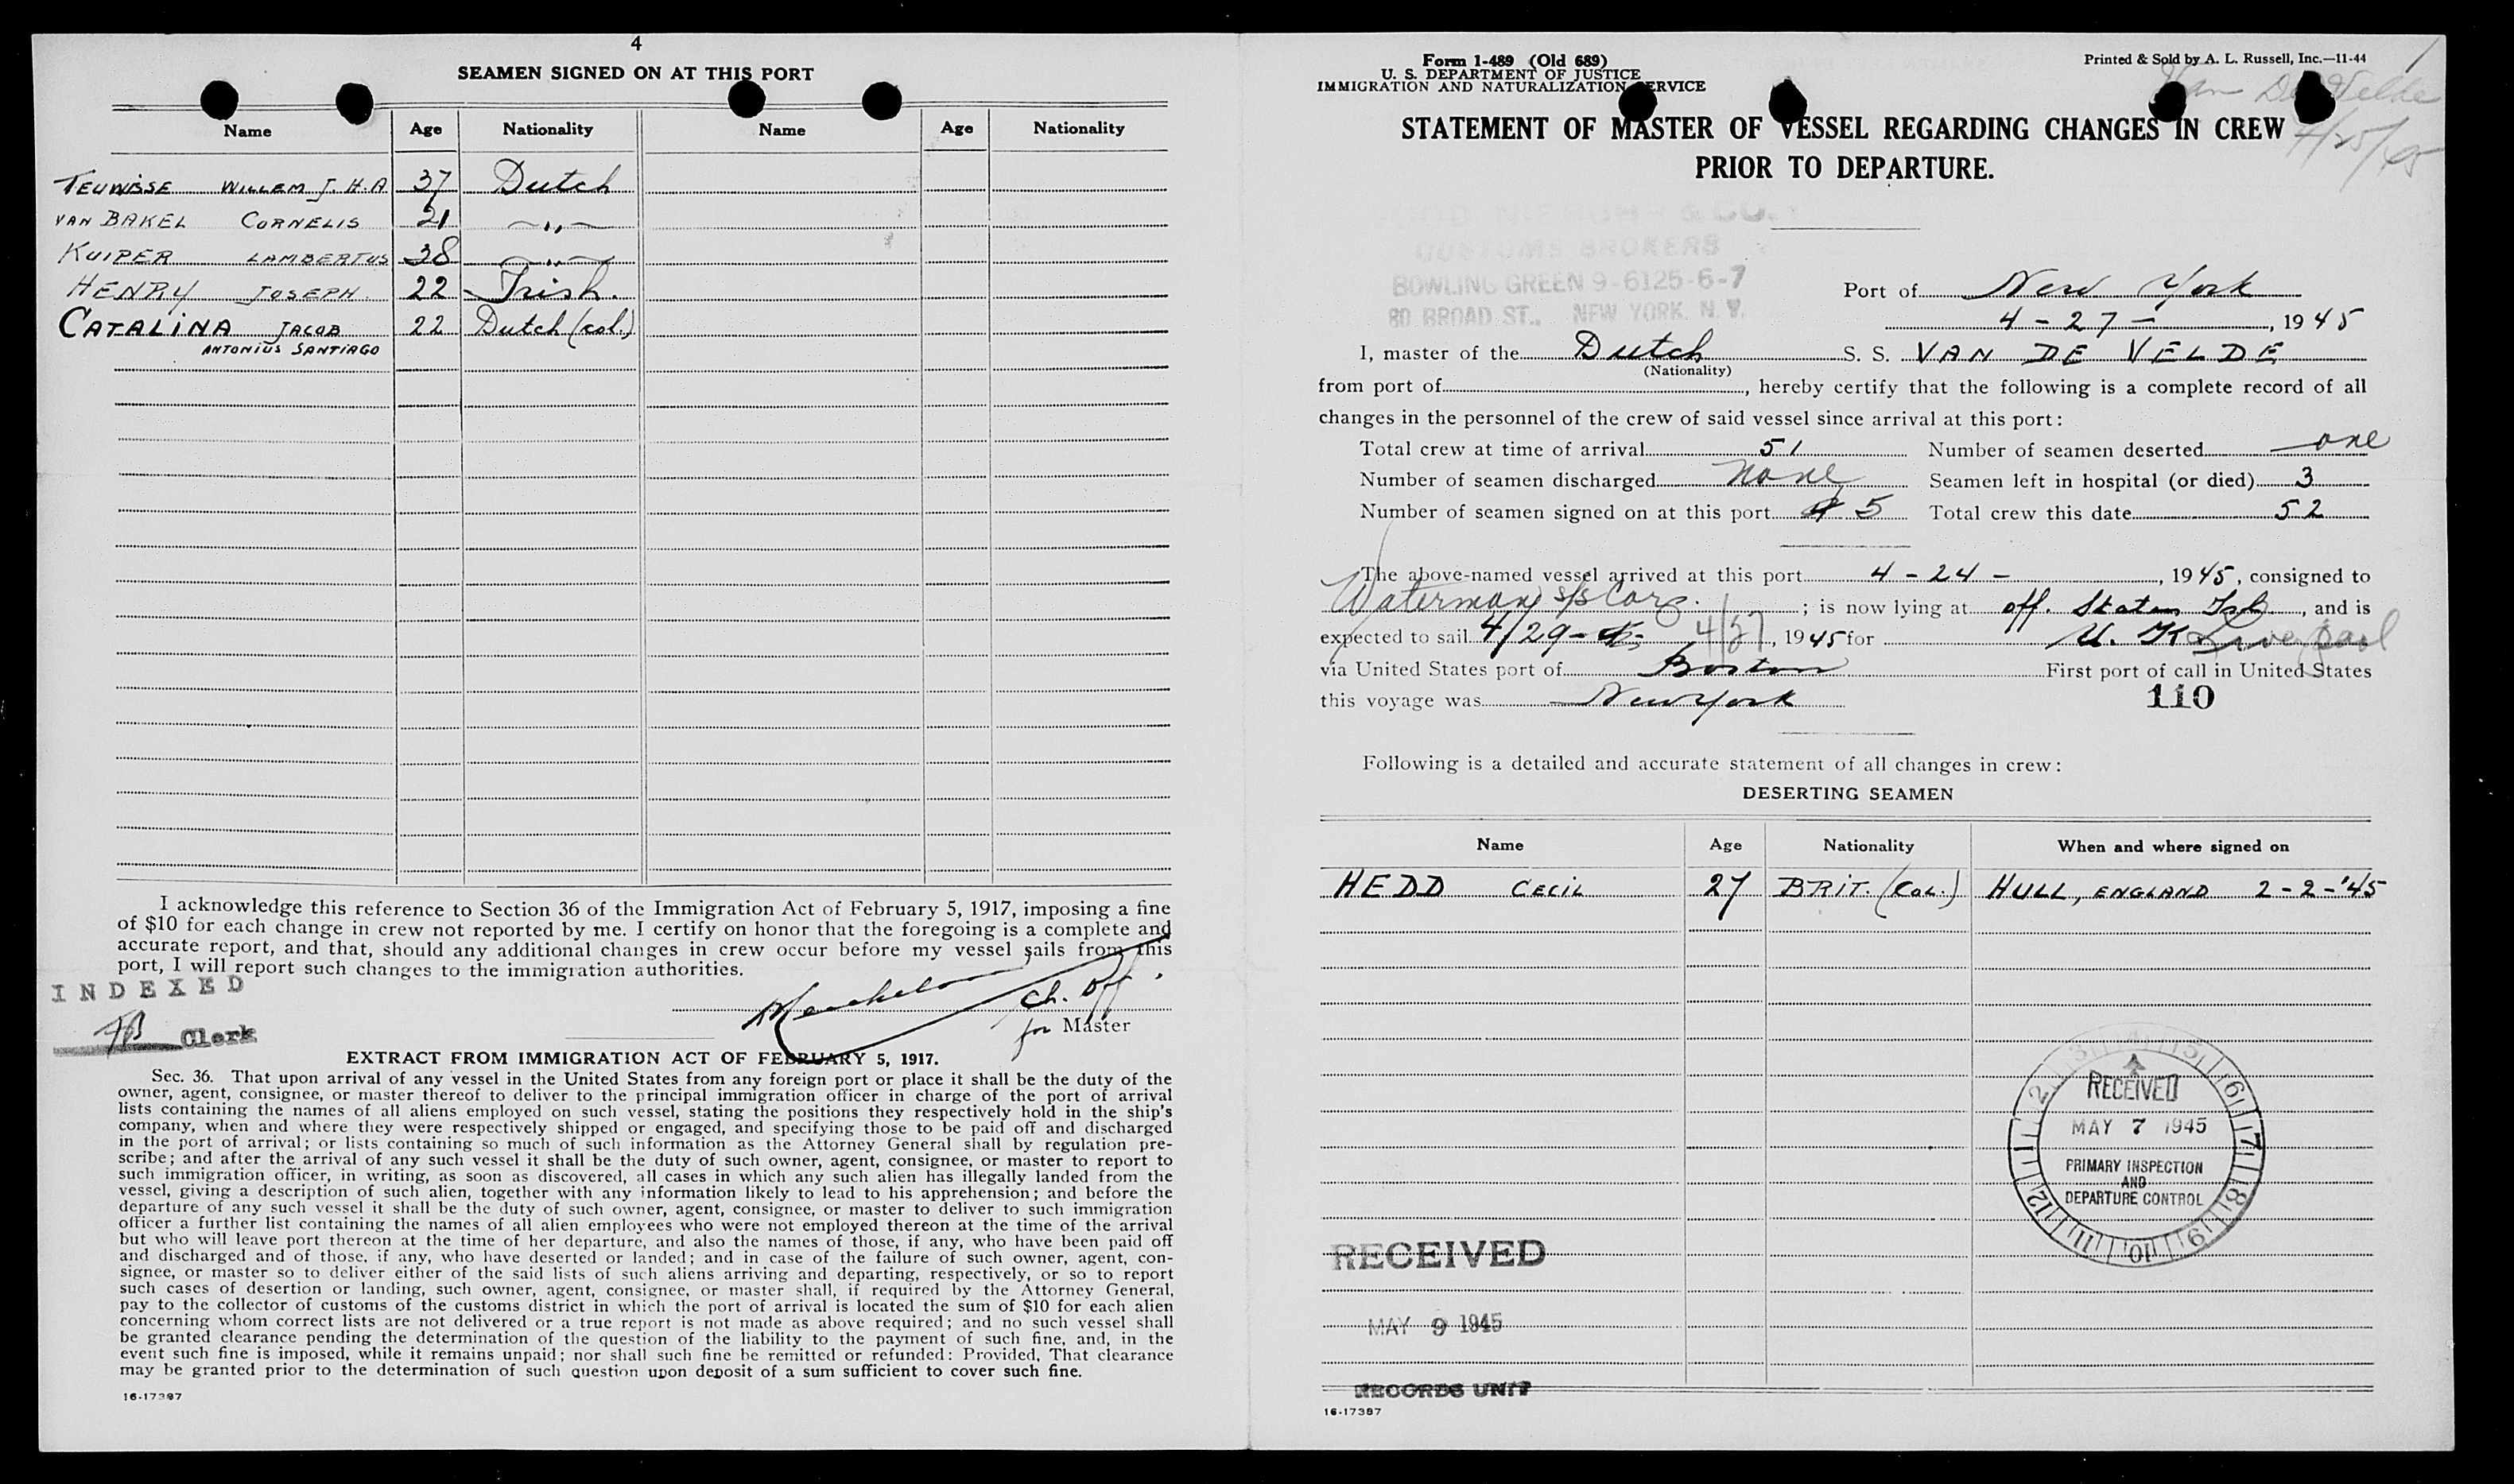 4
SEAMEN SIGNED ON AT THIS PORT
Name Age Nationality Name Age Nationality
TEUWISSE WILLEM J.H.A 37 Dutch
VAN BAKEL CORNELIS 21 -〃-
KUIPER LAMBERTUS 38 -〃-
HENRY JOSEPH. 22 Irish.
CATALINA JACOB 22 Dutch (col.)
ANTONIUS SANTIAGO
I acknowledge this reference to Section 36 of the Immigration Act of February 5, 1917, imposing a fine
of $10 for each change in crew not reported by me. I certify on honor that the foregoing is a complete and
accurate report, and that, should any additional changes in crew occur before my vessel sails from this
port, I will report such changes to the immigration authorities.
INDEXED
Ch. Off.
Clerk
for Master
EXTRACT FROM IMMIGRATION ACT OF FEBRUARY 5, 1917.
Sec. 36. That upon arrival of any vessel in the United States from any foreign port or place it shall be the duty of the
owner, agent, consignee, or master thereof to deliver to the principal immigration officer in charge of the port of arrival
lists containing the names of all aliens employed on such vessel, stating the positions they respectively hold in the ship's
company, when and where they were respectively shipped or engaged, and specifying those to be paid off and discharged
in the port of arrival; or lists containing so much of such information as the Attorney General shall by regulation pre-
scribe; and after the arrival of any such vessel it shall be the duty of such owner, agent, consignee, or master to report to
such immigration officer, in writing, as soon as discovered, all cases in which any such alien has illegally landed from the
vessel, giving a description of such alien, together with any information likely to lead to his apprehension; and before the
departure of any such vessel it shall be the duty of such owner, agent, consignee, or master to deliver to such immigration
officer a further list containing the names of all alien employees who were not employed thereon at the time of the arrival
but who will leave port thereon at the time of her departure, and also the names of those, if any, who have been paid off
and discharged and of those, if any, who have deserted or landed; and in case of the failure of such owner, agent, con-
signee, or master so to deliver either of the said lists of such aliens arriving and departing, respectively, or so to report
such cases of desertion or landing, such owner, agent, consignee, or master shall, if required by the Attorney General,
pay to the collector of customs of the customs district in which the port of arrival is located the sum of $10 for each alien
concerning whom correct lists are not delivered or a true report is not made as above required; and no such vessel shall
be granted clearance pending the determination of the question of the liability to the payment of such fine, and, in the
event such fine is imposed, while it remains unpaid; nor shall such fine be remitted or refunded: Provided, That clearance
may be granted prior to the determination of such question upon deposit of a sum sufficient to cover such fine.
16-17387
Form 1-489 (Old 689)
U. S. DEPARTMENT OF JUSTICE
IMMIGRATION AND NATURALIZATION SERVICE
Printed & Sold by A. L. Russell, Inc.—11-44
Van De Velde
4/25/45
STATEMENT OF MASTER OF VESSEL REGARDING CHANGES IN CREW
PRIOR TO DEPARTURE.
& CO.
CUSTOMS BROKERS
BOWLING GREEN 9-6125-6-7
80 BROAD ST., NEW YORK, N. Y.
Port of New York
4-27-, 1945
I, master of the Dutch S. S. VAN DE VELDE
(Nationality)
from port of , hereby certify that the following is a complete record of all
changes in the personnel of the crew of said vessel since arrival at this port:
Total crew at time of arrival 51 Number of seamen deserted one
Number of seamen discharged None Seamen left in hospital (or died) 3
Number of seamen signed on at this port 4 5 Total crew this date 52
The above-named vessel arrived at this port 4-24-, 1945, consigned to
Waterman s/s Corp. ; is now lying at off. Staten Isl., and is
expected to sail 4/29- 4/27, 1945 for U. K. Liverpool
via United States port of Boston First port of call in United States
this voyage was New York
110
Following is a detailed and accurate statement of all changes in crew:
DESERTING SEAMEN
Name Age Nationality When and where signed on
HEDD CECIL 27 BRIT. (COL.) HULL, ENGLAND 2-2-'45
2 3 4 5 6 7 8 9 10 11 12 1
RECEIVED
MAY 7 1945
PRIMARY INSPECTION
AND
DEPARTURE CONTROL
RECEIVED
MAY 9 1945
RECORDS UNIT
16-17387